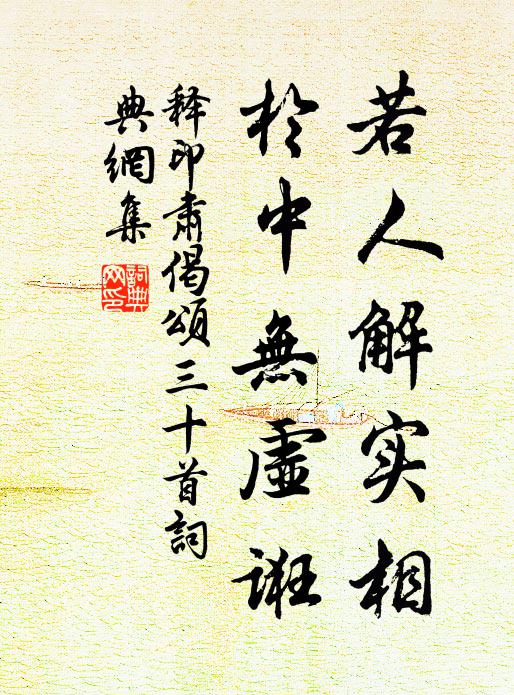 若人解实相
於中無虛诳
释印肃偈頌三十首詞
典網集
詞典
网印